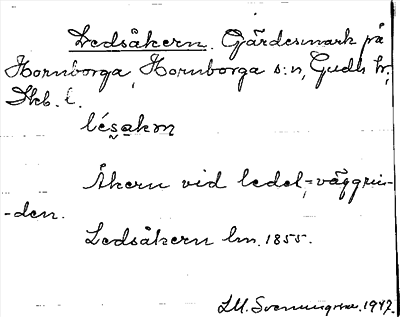 Ledsåkern. Gärdesmark på
Hornborga, Hornborga s:n, Gudh. hr,
Skb. l.
lésakɳ
Åkern vid ledet, = väggrin-
-den.
Ledsåkern lm. 1855.
1947.